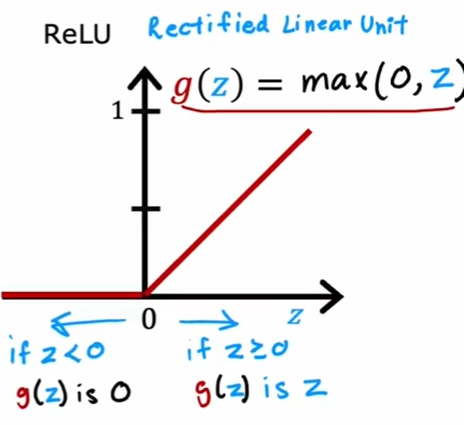 ReLU Rectified Linear Unit
g(z) = max(0, z)
1
0 z
if z<0 if z≥0
g(z) is 0 g(z) is z